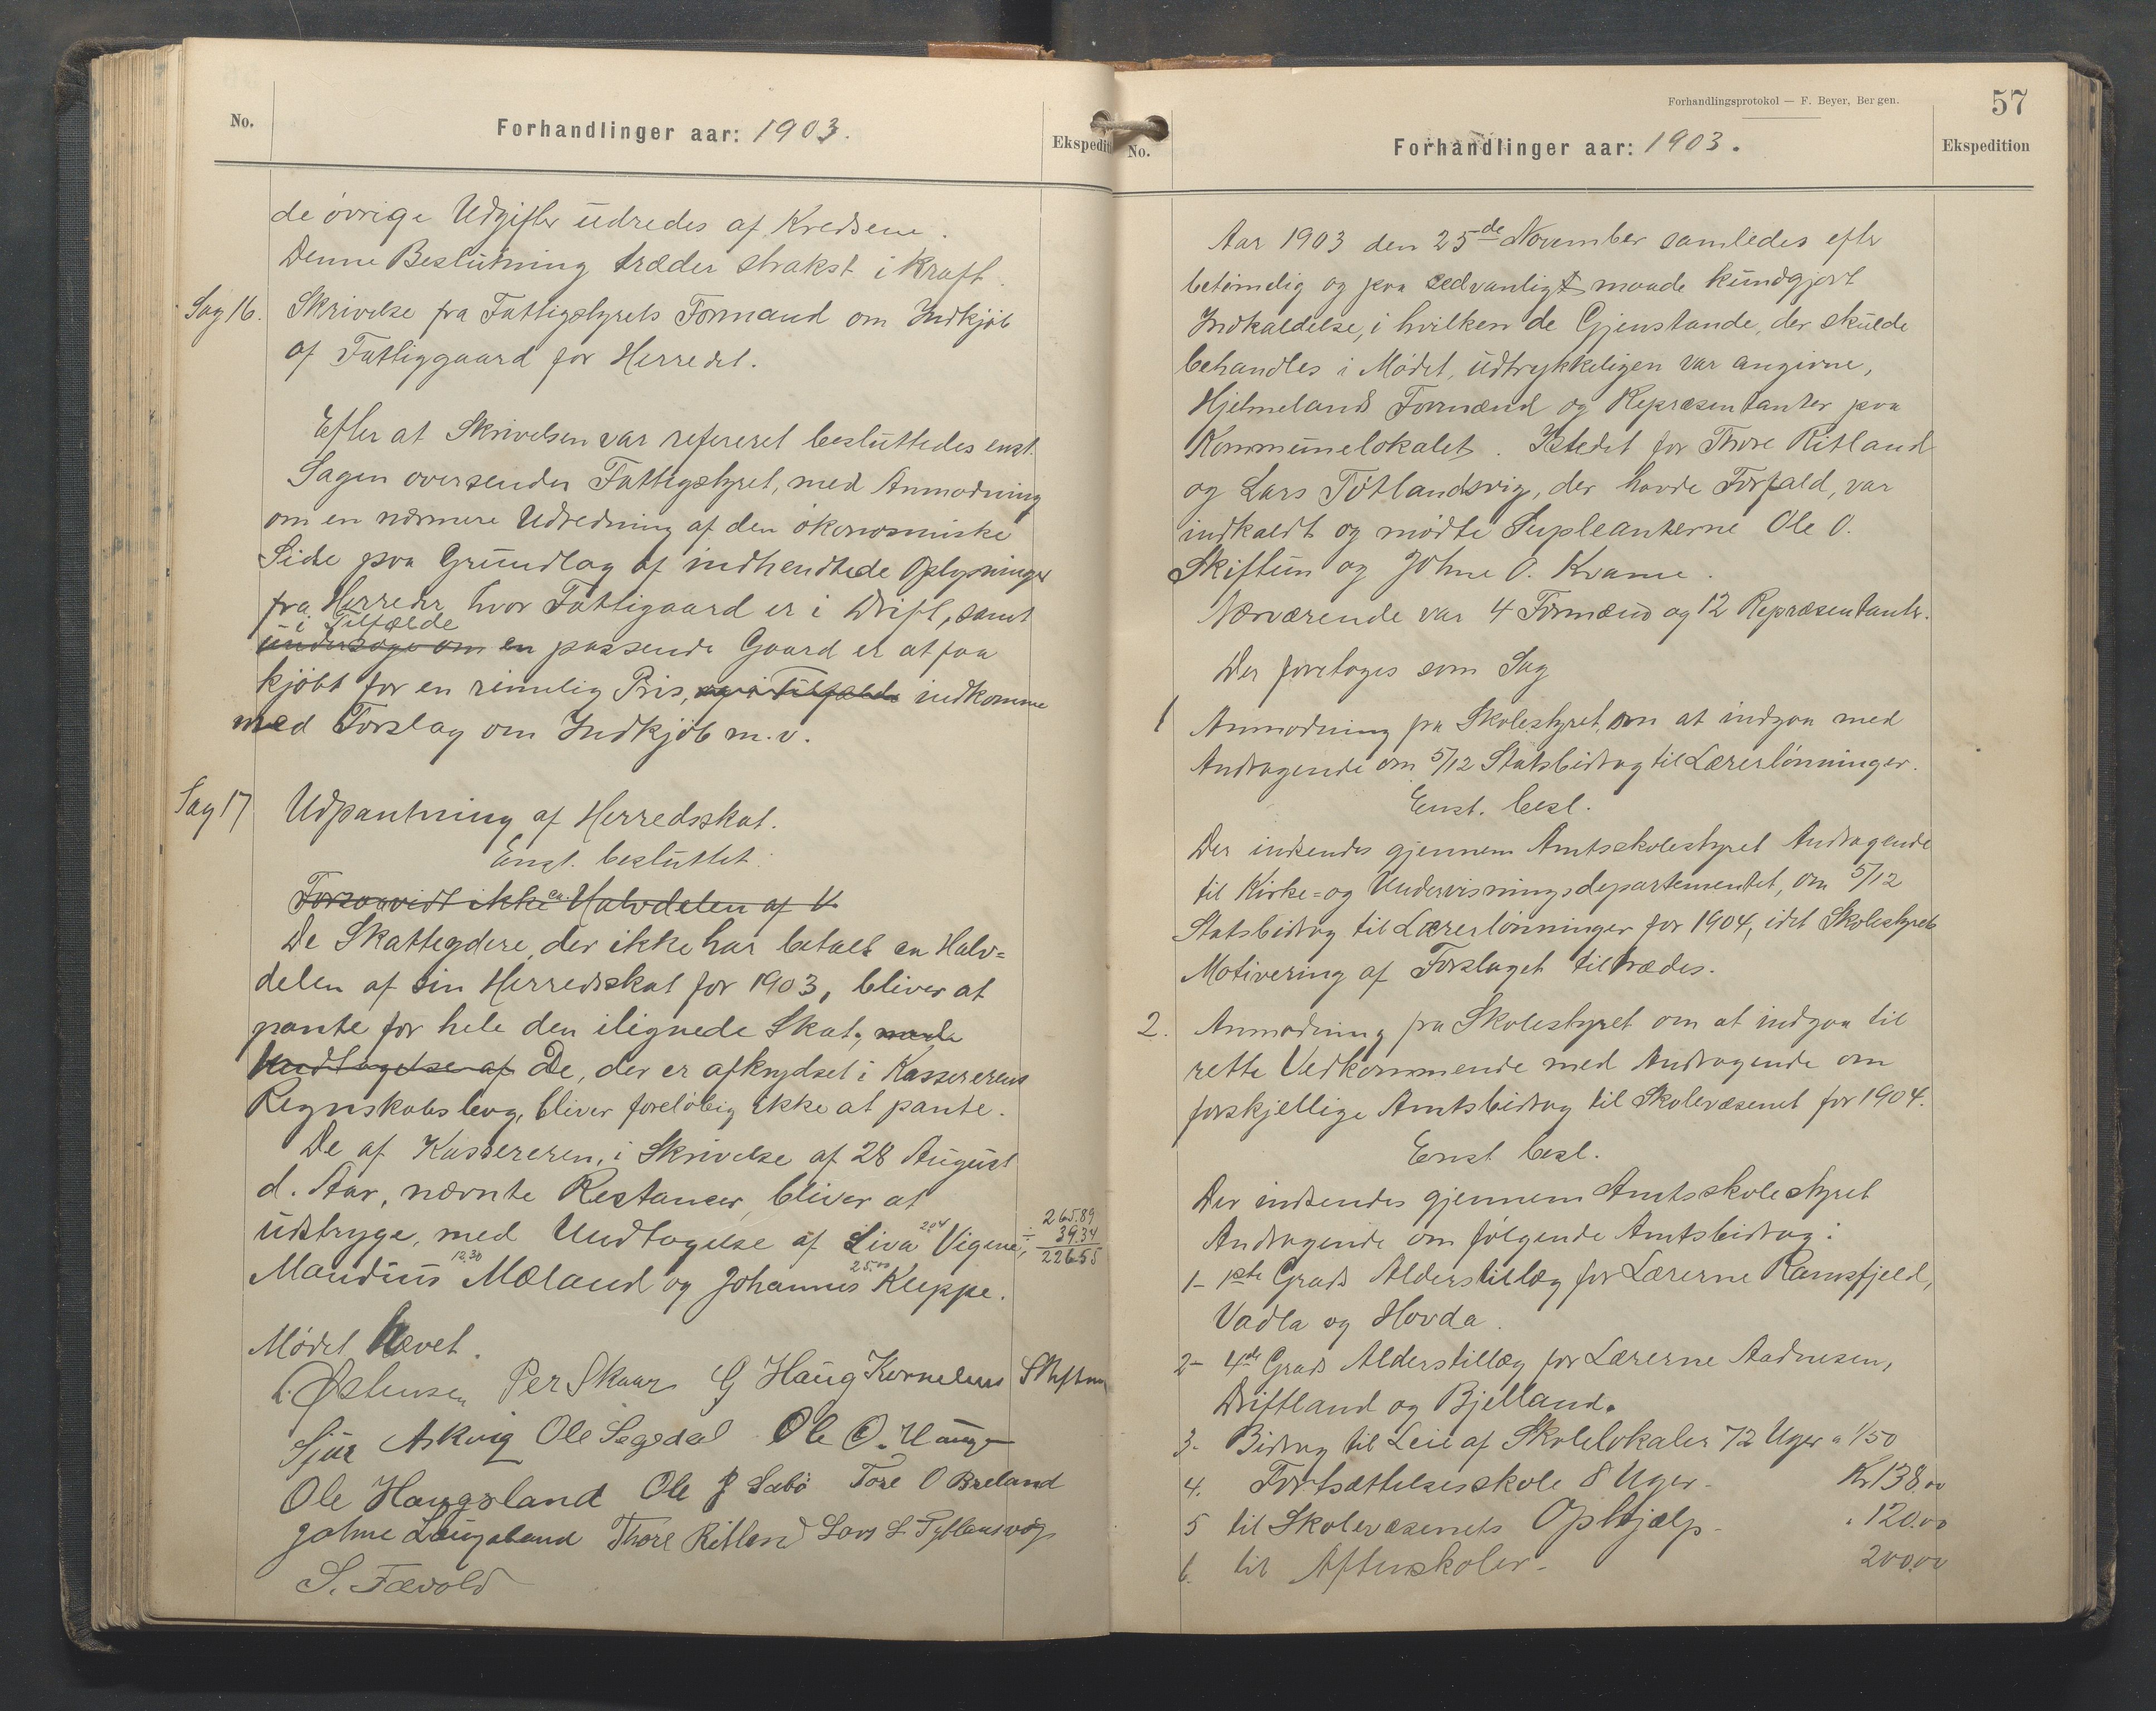 No.
Forhandlinger aar: 1903.
Ekspedit
de øvrige Udgifter udredes af Kredsene.
Denne Beslutning træder strakst i Kraft.
Sag 16. Skrivelse fra Fattigstyrets Formand om Indkjøb
af Fattiggaard for Herredet.
Efter at Skrivelsen var refereret besluttedes enst.
Sagen oversendes Fattigstyret, med Anmodning
om en nærmere Udredning af den økonomiske
Side paa Grundlag af indhendtede Oplysninger
fra Herreder hvor Fattigaard er i Drift, samt
i Tilfælde
undersøge om en passende Gaard er at faa
kjøbt for en rimelig Pris, og i Tilfælde indkomme
med Forslag om Indkjøb m.v.
Sag 17 Udpantning af Herredsskat.
Enst. besluttet:
Forsaavidt ikke en Halvdelen af
De Skattegdere, der ikke har betalt en Halv=
delen af sin Herredsskat for 1903, bliver at
pante for hele den ilignede Skat, med
Undtagelse af De, der er afkrydset i Kassererens
Regnskabsbog, bliver foreløbig ikke at pante.
De af Kassereren, i Skrivelse af 28 August
d. Aar, nævnte Restancer, bliver at
265.89
udstryge, med Undtagelse af Siva 204 Vigene, ÷ 39.34
226.55
Maudius 12.30 Mæland og Johannes 25.00 Kleppe.
Mødet hævet.
Østensen Per Skaar G Haug Kornelius Skiftun
Sjur Askvig Ole Segedal Ole O. Hauge
Ole Haugsland Ole J Sabø Tore O Breland
Johne Laugaland Thore Ritland Lars L. Tytlandsvig
S. Fævold
Forhandlingsprotokol — F. Beyer, Bergen.
57
No.
Forhandlinger aar: 1903.
Ekspedition
Aar 1903 den 25de November samledes efter
betimelig og paa sedvanligt maade kundgjort
Indkaldelse, i hvilken de Gjenstande, der skulde
behandles i Mødet, udtrykkeligen var angivne,
Hjelmelands Formænd og Repræsentanter paa
Kommunelokalet. Istedet for Thore Ritland
og Lars Tøtlandsvig, der havde Forfald, var
indkaldt og mødte Supleanterne Ole O.
Skiftun og Johne O. Kvame.
Nærværende var 4 Formænd og 12 Repræsentanter.
Der foretoges som Sag
1 Anmodning fra Skolestyret, om at indgaa med
Andragende om 5/12 Statsbidrag til Lærerlønninger.
Enst. besl.
Der indsendes gjennem Amtsskolestyret Andragende
til Kirke= og Undervisningsdepartementet, om 5/12
Statsbidrag til Lærerlønninger for 1904, idet Skolestyrets
Motivering af Forslaget tiltrædes.
2. Anmodning fra Skolestyret om at indgaa til
rette Vedkommende med Andragende om
forskjellige Amtsbidrag til Skolevæsenet for 1904.
Enst besl.
Der indsendes gjennem Amtsskolestyret
Andragende om følgende Amtsbidrag:
1- 1ste Grads Alderstillæg for Lærerne Ramsfjeld,
Vadla og Hovda.
2- 4de Grads Alderstillæg for Lærerne Aadnesen,
Driftland og Bjelland.
3. Bidrag til Leie af Skolelokaler 72 Uger a 1/50
4. Fortsættelsesskole 8 Uger - Kr 138,00
5 til Skolevæsenets Ophjælp - " 120.00
6. til Aftenskoler - 200.00